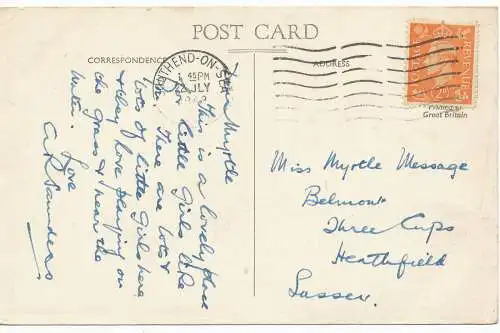 POST CARD
CORRESPONDENCE
ADDRESS
SOUTHEND-ON-SEA
45PM
22 JLY
POSTAGE
REVENUE
Great Britain
Dear Myrtle
This is a lovely place
for little Girls like
you. There are lots &
lots of little Girls here
& they love playing on
the Grass & near the
water.
Love
Miss Myrtle Message
Belmont
Three Cups
Heathfield
Sussex.